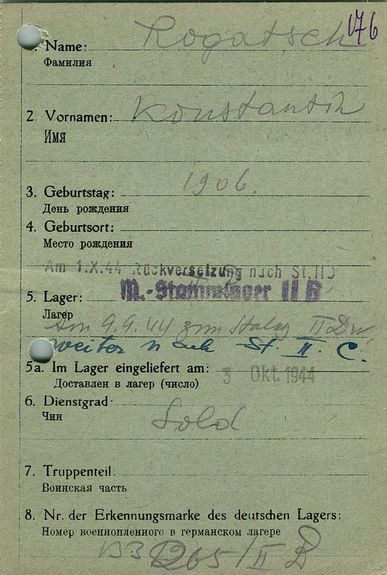 176
1. Name: Rogatsch
Фамилия
2 Vornamen: Konstantin
Имя
3. Geburtstag: 1906.
День рождения
4. Geburtsort:
Место рождения
Am 1.X.44 Rückversetzung nach St. II D
5. Lager: M.-Stammlager II B
Лагер
Am 9.9.44 zum Stalag II
weiter nach St. II. C.
5a. Im Lager eingeliefert am: 3 Okt. 1944
Доставлен в лагер (число)
6. Dienstgrad: Sold
Чин
7. Truppenteil:
Воинская часть
8. Nr. der Erkennungsmarke des deutschen Lagers:
Номер военнопленного в германском лагере
265/II B